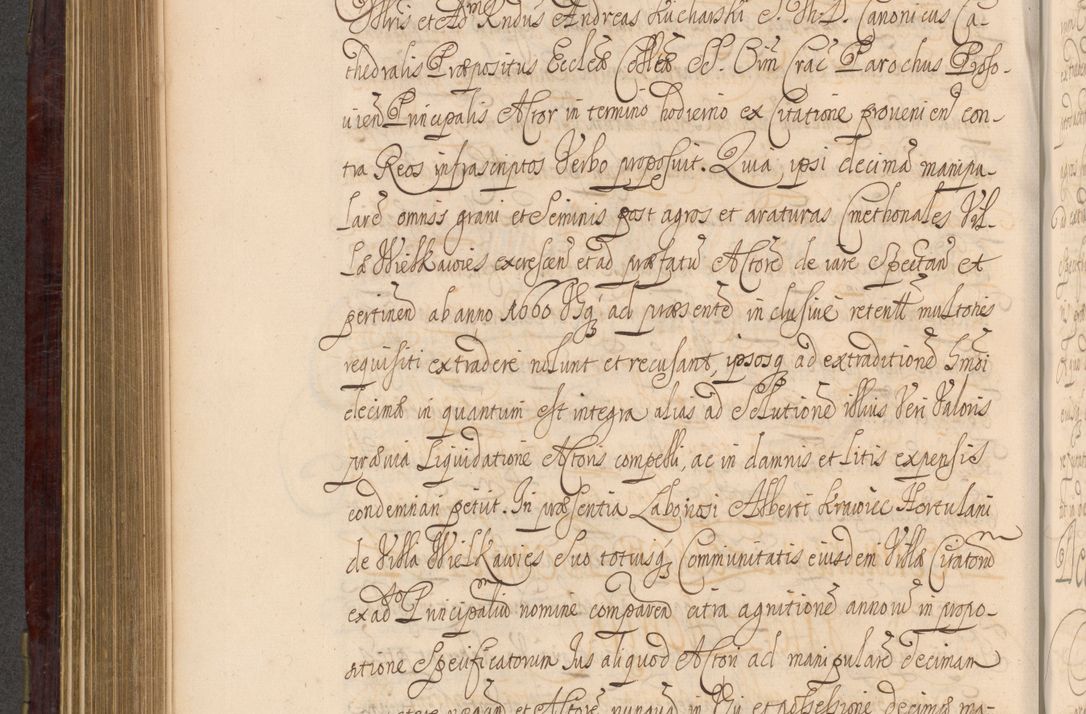 Illris et Adm Rndus Andreas Kucharski S. Th. D. Canonicus Ca-
thedralis Præpositus Ecclæ Collæ SS. Oim Crac Parochus Prosso-
uien Principalis Actor in termino hodierno ex Citatione prouenien con-
tra Reos infrascriptos Verbo proposuit. Quia ipsi decima manipu-
lare omnis grani et Seminis post agros et araturas Cmethonales Vil-
læ Wielkawies excrescen et ad præfatu Actore de iure Spectan et
pertinen ab anno 1666 Vsq ad præsente inclusiue retent multories
requisiti extradere nolunt et recusant, ipsosq ad extraditione hmoi
decimæ in quantum est integra alias ad Solutione illius Veri Valoris
præuia Liquidatione Actoris compelli, ac in damnis et Litis expensis
condemnari petiit. In præsentia Laboriosi Alberti Krawiec Hortulani
de Villa Wielkawies Suo totiusq Communitatis eiusdem Villæ Citatorum
ex ad Principaliu nomine comparen citra agnitione annoru in propo-
sitione Specificatorum Ius aliquod Actori ad manipulare Decimam
et Actore nunquam in et possessione decimæ ma-